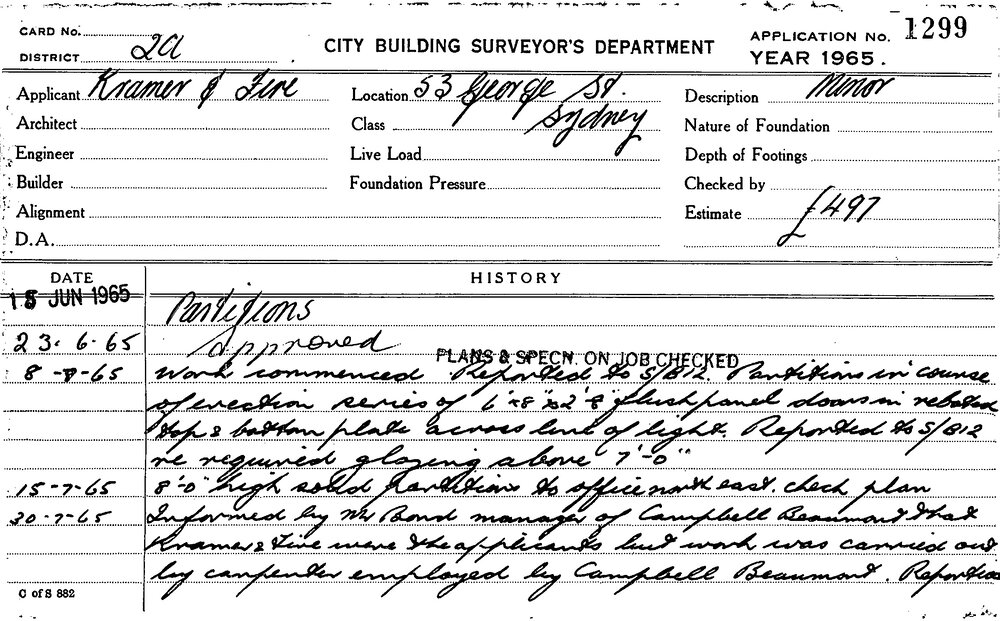 CARD No.
DISTRICT 2a
CITY BUILDING SURVEYOR'S DEPARTMENT
APPLICATION No. 1299
YEAR 1965.
Applicant Kramer & Fire
Location 53 George St. Sydney
Description Minor
Architect
Class
Nature of Foundation
Engineer
Live Load
Depth of Footings
Builder
Foundation Pressure
Checked by
Alignment
Estimate £497
D.A.
DATE HISTORY
15 JUN 1965 Partitions
23.6.65 Approved
PLANS & SPECN. ON JOB CHECKED
8-7-65 Work commenced Reported to S/B12. Partitions in course
of erection series of 6'x8"x2'8" flush panel doors in rebated
top & bottom plate across line of light. Reported to S/B12
re required glazing above 7'-0"
15-7-65 8'0" high solid partitions to office north east. check plan
30-7-65 Informed by Mr Bond manager of Campbell Beaumont that
Kramer & Fire were the applicants but work was carried out
by carpenter employed by Campbell Beaumont.
C of S 882